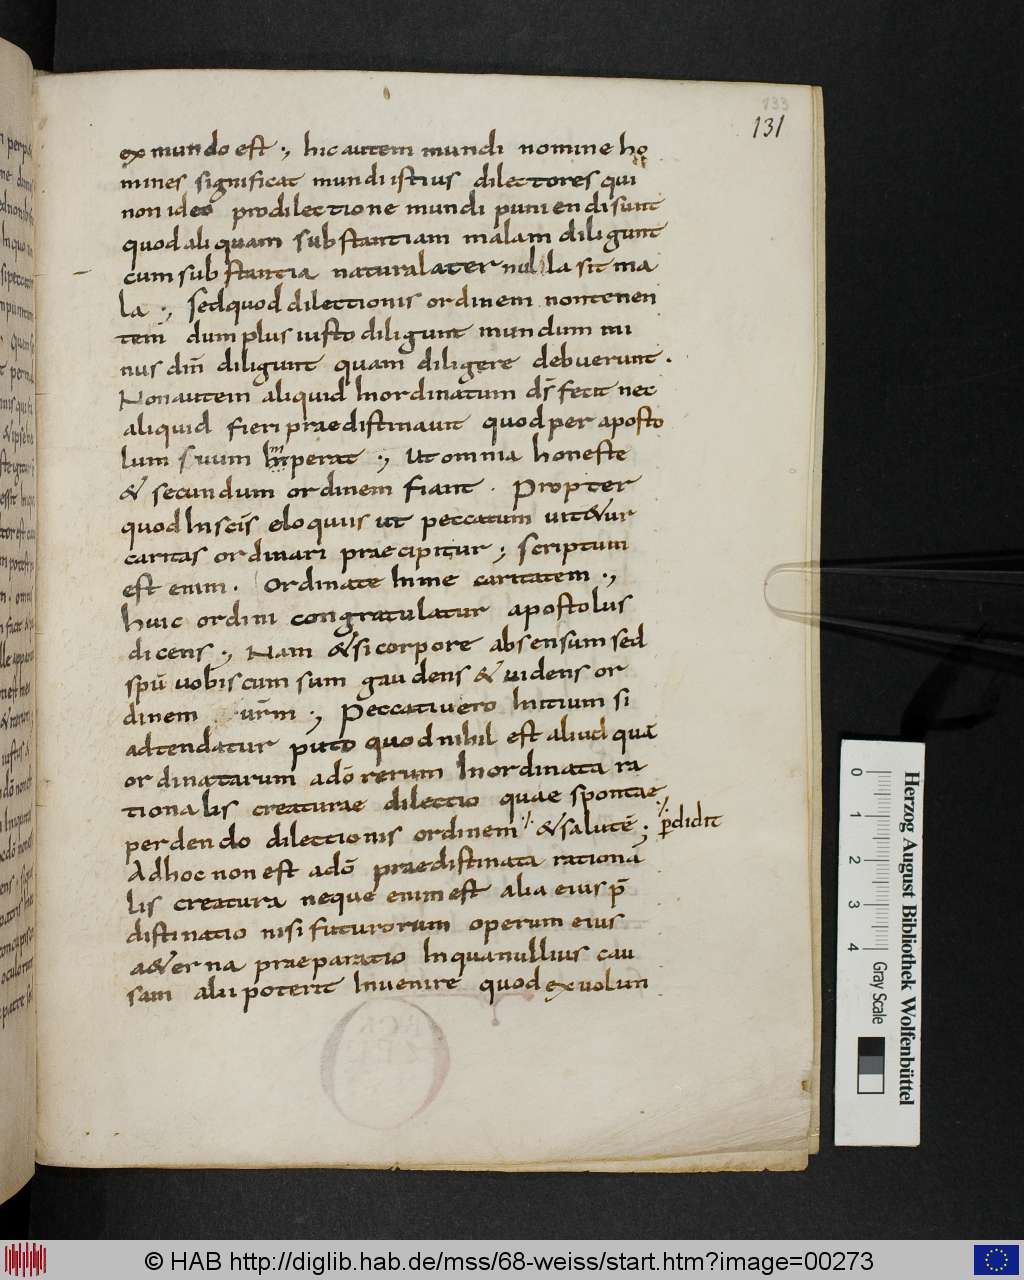 133
131
ex mundo est ·, hic autem mundi nomine ho
mines significat mundi istius dilectores qui
non ideo pro dilectione mundi puniendi sunt
quod aliquam substantiam malam diligunt
cum substantia naturalater nulla sit ma
la ·, sed quod dilectionis ordinem non tenen
tem dum plus iusto diligunt mundum mi
nus dn̄m diligunt quam diligere debuerunt .
Non autem aliquid Inordinatum ds̄ fecit nec
aliquid fieri praedistinauit quod per aposto
lum suum Imperat ·, Ut omnia honeste
& secundum ordinem fiant . Propter
quod In scīs eloquiis ut peccatum uit&ur
caritas ordinari praecipitur ; scriptum
est enim . Ordinate In me caritatem ·,
huic ordini congratulatur apostolus
dicens ·, Nam &si corpore absens sum sed
spū uobiscum sum gaudens & uidens or
dinem ur̄m ·, Peccati uero Initium si
adtendatur puto quod nihil est aliud quā
ordinatarum a dō rerum Inordinata ra
tionalis creaturae dilectio quae spontae
perdendo dilectionis ordinem ·/· & salutē ; ·/· p̄didit
Ad hoc non est a dō praedistinata rationa
lis creatura neque enim est alia eius p̄
distinatio nisi futurorum operum eius
a&erna praeparatio In qua nullius cau
sam alii poterit Inuenire quod ex uolun
Herzog August Bibliothek Wolfenbüttel
0 1 2 3 4 Gray Scale
© HAB http://diglib.hab.de/mss/68-weiss/start.htm?image=00273